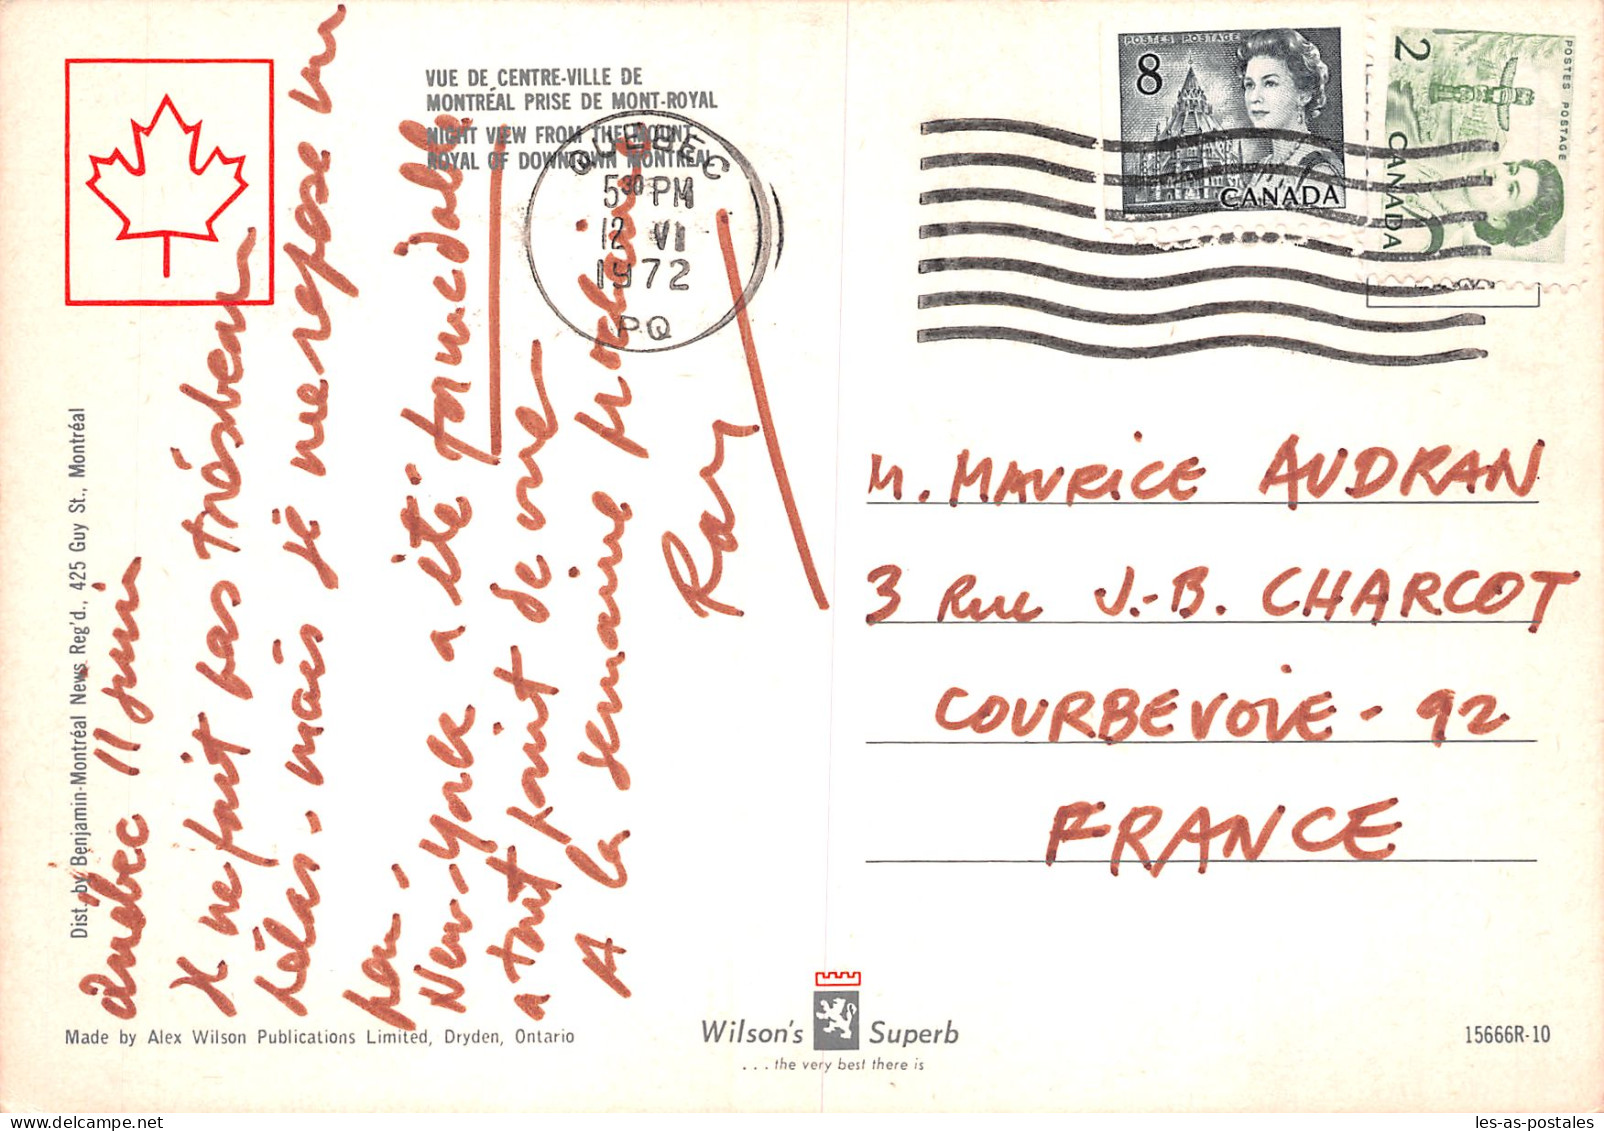 VUE DE CENTRE-VILLE DE
MONTRÉAL PRISE DE MONT-ROYAL
NIGHT VIEW FROM THE MOUNT
ROYAL OF DOWNTOWN MONTREAL
QUEBEC
5 30 PM
12 VI
1972
PQ
POSTES POSTAGE
8
CANADA
POSTES POSTAGE
2
CANADA
Dist. by Benjamin-Montréal News Reg'd., 425 Guy St., Montréal
Québec 11 juin
Il ne fait pas très beau
hélas. mais je me repose un
peu.
New-York a été formidable
a tout point de vue
A la semaine prochaine
M. MAURICE AUDRAN
3 Rue J.-B. CHARCOT
COURBEVOIE - 92
FRANCE
Made by Alex Wilson Publications Limited, Dryden, Ontario
Wilson's Superb
... the very best there is
15666R-10
les-as-postales